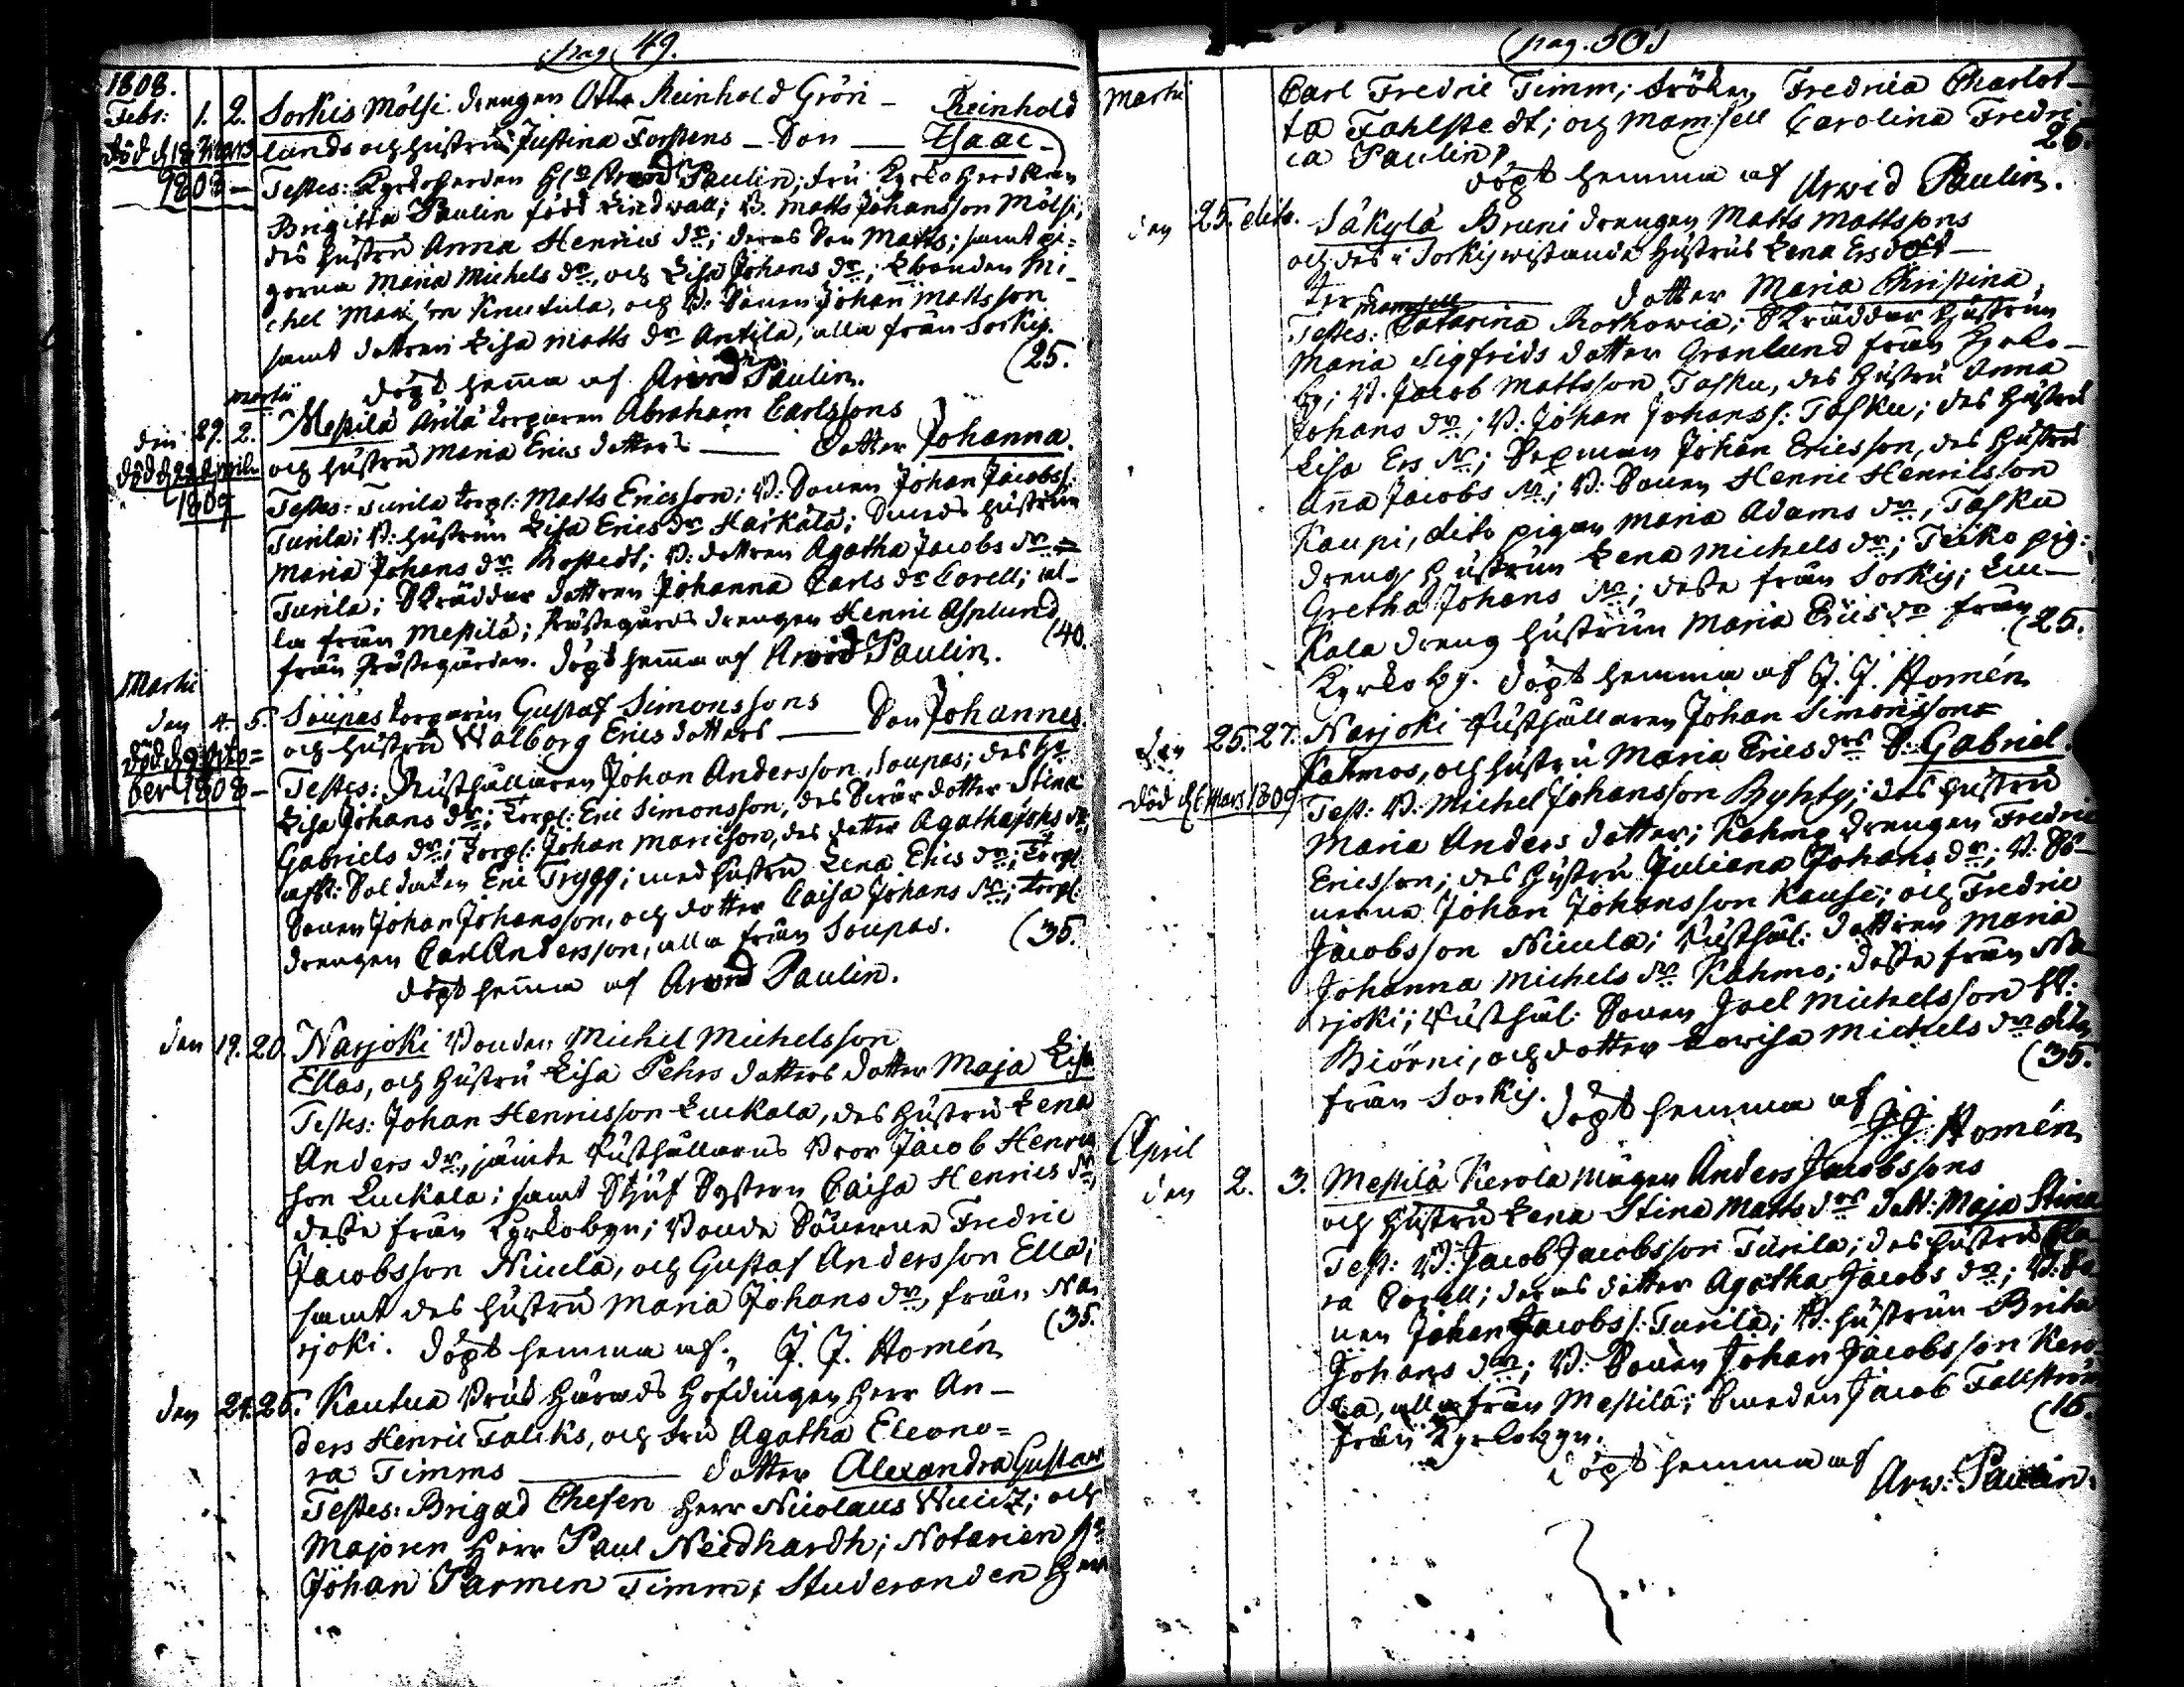 pag. 49.
1808.
Febr: 1. 2. Sorkis Mölsi drengen Otto Reinhold Grön- Reinhold
död d. 18 Mars lunds och hustru Justina Forstens - Son - Isaac
1808 - Testes: Kyrkoherden Hr Arvid Paulin; fru Kyrkoherdskan
Brigitta Paulin född Lindwall; B. Matts Johansson Mölsi;
des hustru Anna Henrics dr; deras Son Matts; samt pi=
gorna Maria Michels dr, och Lisa Johans dr; Mi-
chel Knuutila, och B: Sonen Johan Mattsson
samt dottren Lisa Matts dr Anttila, alla från Sorkis.
(25.
döpt hemma af Arvid Paulin.
Martii
den 29. 2. Mestilä Arilä torparen Abraham Carlssons
och hustru Maria Erics dotters - Dotter Johanna.
död d. 22 Aprilis
1809
Testes: Turila torp: Matts Ericsson; B: Sonen Johan Jacobss:
Turila; B: hustrun Lisa Erics dr Harkälä; Smeds hustrun
Maria Johans dr Bostedt; B: dottren Agatha Jacobs dr =
Turila; Skräddar dottren Johanna Carls dr Corell; al-
la från Mestilä; Prästegårds drengen Henric Asplund
från Prästegården. döpt hemma af Arvid Paulin. (40.
Martii
den 4. 5. Soupas torparen Gustaf Simonssons
och hustru Walborg Erics dotters - Son Johannes.
död d. 9
ber 1808 - Testes: Rusthållaren Johan Andersson Soupas; des h:
Lisa Johans dr; Torp: Eric Simonsson, des Svär dotter Stina
Gabriels dr; Torp: Johan Maricson, des dotter Agatha Johs dr;
afsk: Soldaten Eric Trygg; med hustru Lena Erics dr; Torp:
Sonen Johan Johansson, och dotter Caisa Johans dr; Torp:
drengen Carl Andersson, alla från Soupas. (35.
döpt hemma af Arvid Paulin.
den 19. 20. Narjoki Bonden Michel Michelsson
Ellas, och hustru Lisa Pehrs dotters dotter Maja Lisa
Testes: Johan Henricsson Luckala, des hustru Lena
Anders dr, jämte Rusthållarens Bror Jacob Henrics
son Luckala; samt Stjuf Systern Caisa Henrics dr,
desse från Kyrkobyn; Bonde Sönerne Fredric
Jacobsson Nicula, och Gustaf Andersson Ella;
samt des hustru Maria Johans dr, från Na-
rjoki. döpt hemma af J. J. Homén (35.
den 24. 25. Kautua Bruk Härads Höfdingen Herr An-
ders Henric Falcks, och fru Agatha Eleono=
ra Timms - dotter Alexandra Gustav
Testes: Brigad Chefen Herr Nicolaus Wuicz; och
Majoren Herr Paul Neidhardh; Notarien Hr
Johan Parmen Timm; Studeranden Herr
pag. 50.
Martii Carl Fredric Timm; Fröken Fredrica Charlot-
ta Fahlstedt; och Mamsell Carolina Fredri
ca Paulin. 26.
döpt hemma af Arvid Paulin.
den 25. dito. Säkylä Bruni drengen Matts Mattssons
och des i Sorkis wistande hustrus Lena Ers dot-
ters - dotter Maria Christina,
Testes: Mamsell Catarina Rothovia; Skräddar hustrun
Maria Sigfrids dotter Grönlund från Kyrko-
by; B. Jacob Mattsson Tasku, des hustru Anna
Johans dr; B: Johan Johanss: Tasku; des hustru
Lisa Ers dr; Johan Ericsson, des hustru
Anna Jacobs dr; B: Sonen Henric Henricsson
Kaupi, dito pigan Maria Adams dr, Tasku
dreng hustrun Lena Michels dr; Teiko pig:
Gretha Johans dr; desse från Sorkis; Luc-
kala dreng hustrun Maria Erics dr från
Kyrkoby. döpt hemma af J. J. Homén (25.
den 25. 27. Narjoki Rusthållaren Johan Simonssons
Kahmos, och hustru Maria Erics drs S: Gabriel.
död d. 6 Mars 1809
Test: B: Michel Johansson Byhty; des hustru
Maria Anders dotter; Kahmo drengen Fredric
Ericsson; des hustru Juliana Johans dr; B: Sö-
nerna Johan Johansson Kause; och Fredric
Jacobsson Nicula; Rusthål: dottren Maria
Johanna Michels dr Kahmo; desse från Na-
rjoki; Rusthål: Sonen Joel Michelsson
Biörni, och dotter Lovisa Michels dr dito
från Sorkis. (35.
döpt hemma af J. J. Homén
April
den 2. 3. Mestilä Kerola Mågen Anders Jacobssons
och hustru Lena Stina Matts drs dott: Maja Stina
Test: B: Jacob Jacobsson Turila; des hustru Cla
ra Corell; deras dotter Agatha Jacobs dr; B: So
nen Johan Jacobs: Turila; B: hustrun Brita
Johans dr; B: Sonen Johan Jacobsson Kero
la, alla från Mestilä; Smeden Jacob Fallström
från Kyrkobyn. (16.
döpt hemma af Arw: Paulin.